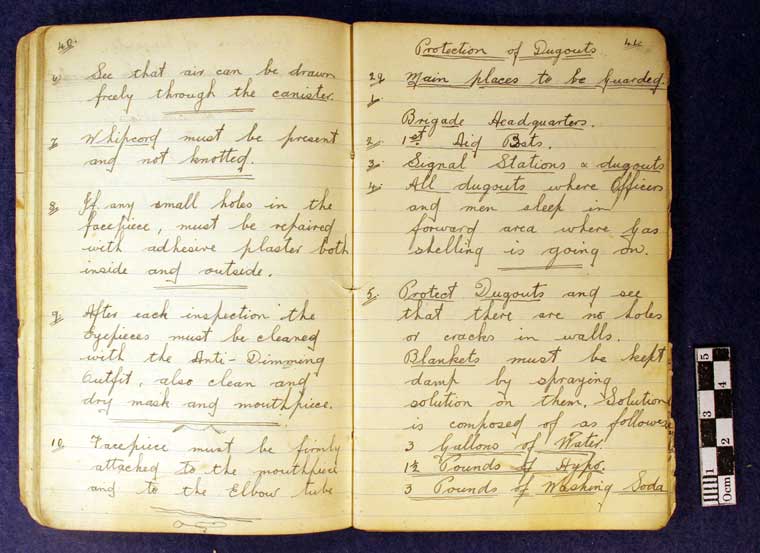 40.
6 See that air can be drawn
freely through the canister.
7. Whipcord must be present
and not knotted.
8. If any small holes in the
facepiece, must be repaired
with adhesive plaster both
inside and outside.
9. After each inspection the
Eyepieces must be cleaned
with the Anti-Dimming
Outfit, also clean and
dry mask and mouthpiece.
10. Facepiece must be firmly
attached to the mouthpiece
and to the Elbow tube
Protection of Dugouts
Main places to be Guarded.
1.
Brigade Headquarters.
2. 1st Aid Posts.
3. Signal Stations & dugouts
4. All dugouts where Officers
and men sleep in
forward area where Gas
shelling is going on.
5. Protect Dugouts and see
that there are no holes
or cracks in walls.
Blankets must be kept
damp by spraying
solution on them. Solution
is composed of as follows
3 Gallons of Water
1½ Pounds of Hypo.
3 Pounds of Washing Soda
5
4
3
2
1
0cm